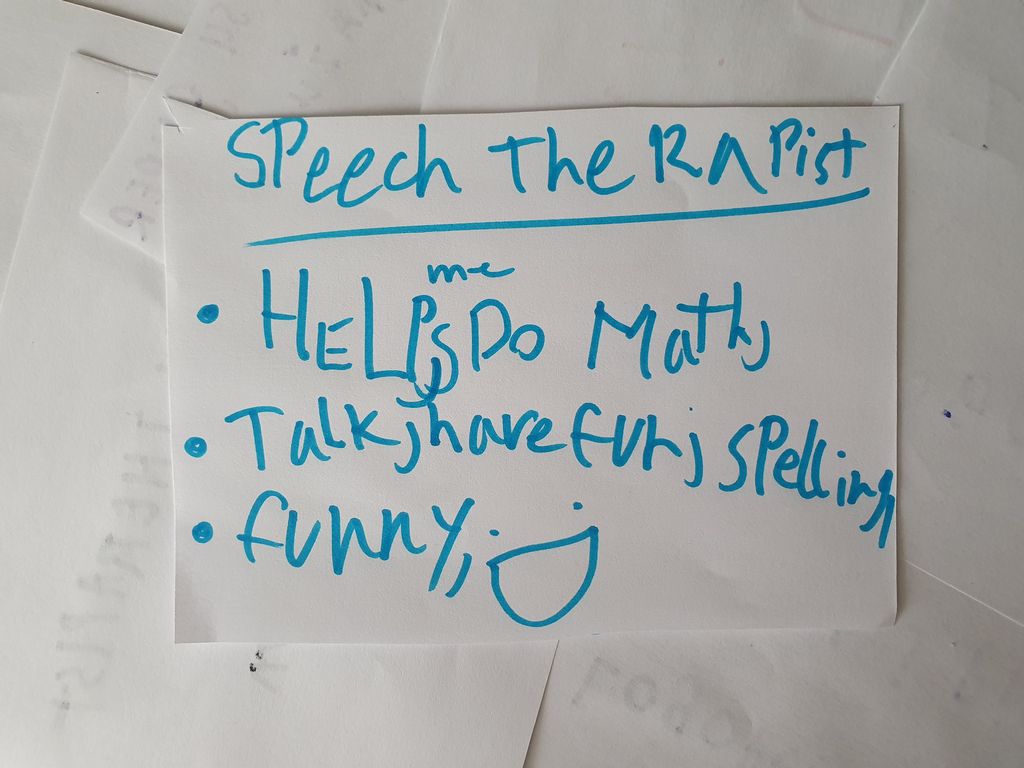 SPeech TheRAPist
me
• HELPs Do Math,
• Talk, have fun, spelling
• funny,